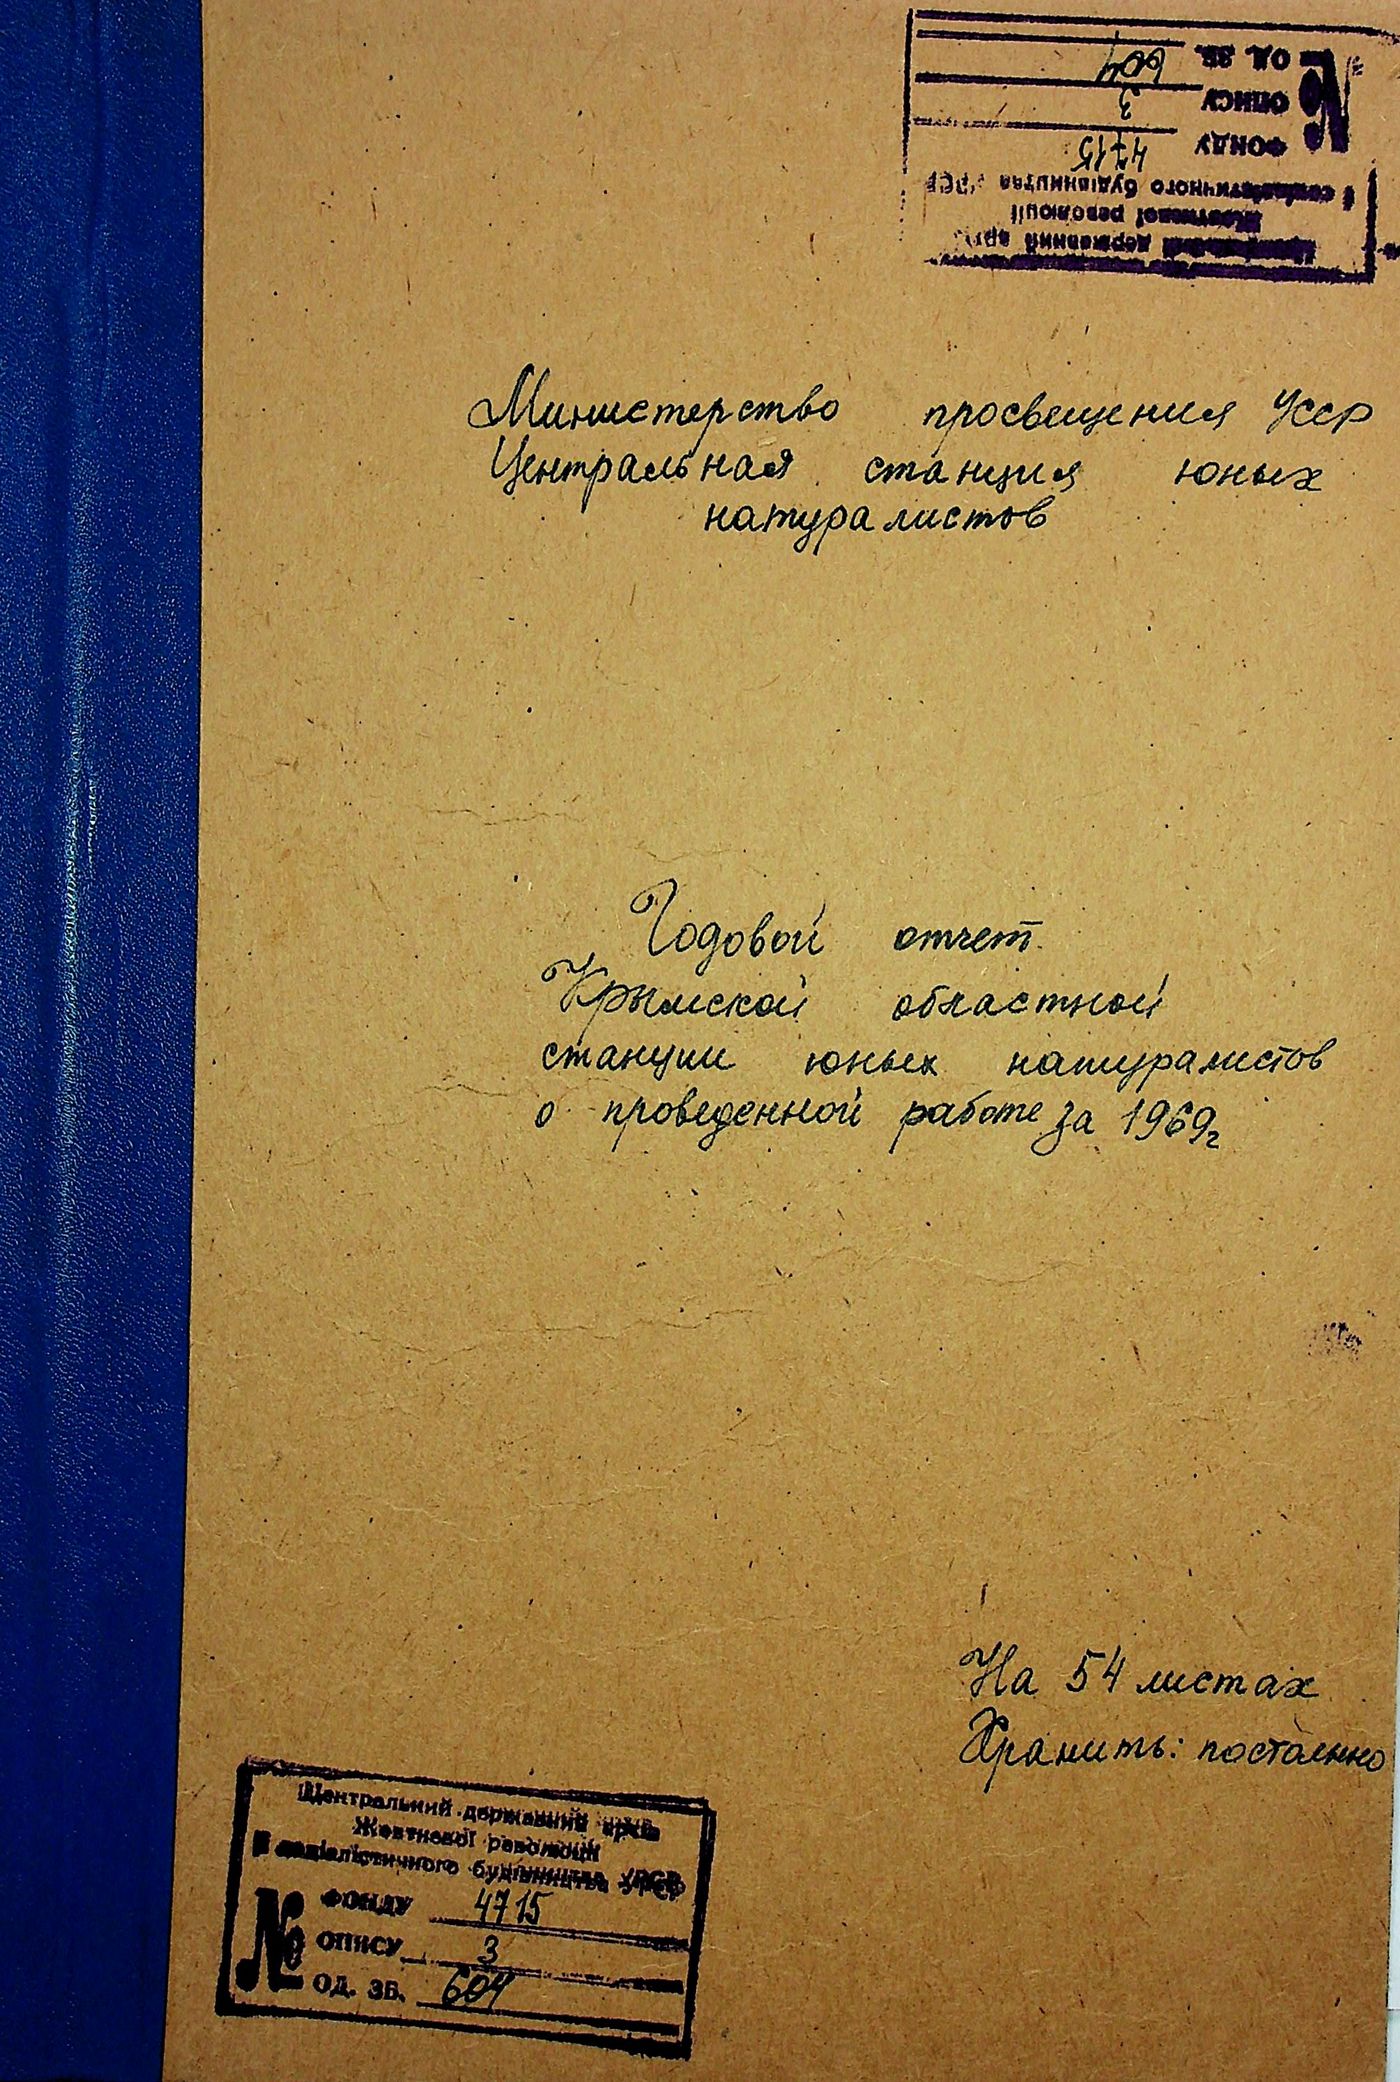 Центральний державний архів
Жовтневої революції
і соціалістичного будівництва УРСР
№
ФОНДУ 4715
ОПИСУ 3
ОД. ЗБ. 604
Министерство просвещения УССР
Центральная станция юных
натуралистов
Годовой отчет
Крымской областной
станции юных натуралистов
о проведенной работе за 1969г
На 54 листах
Хранить: постоянно
Центральний державний архів
Жовтневої революції
і соціалістичного будівництва УРСР
№
ФОНДУ 4715
ОПИСУ 3
ОД. ЗБ. 604